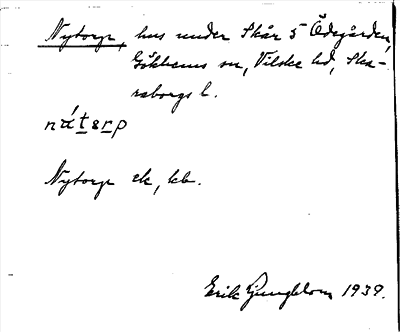 Nytorp, hus under Skår 5 Ödegården,
Gökhems sn, Vilske hd, Ska-
raborgs l.
nátærp
Nytorp ek, kb.
Erik Ljungblom 1939.